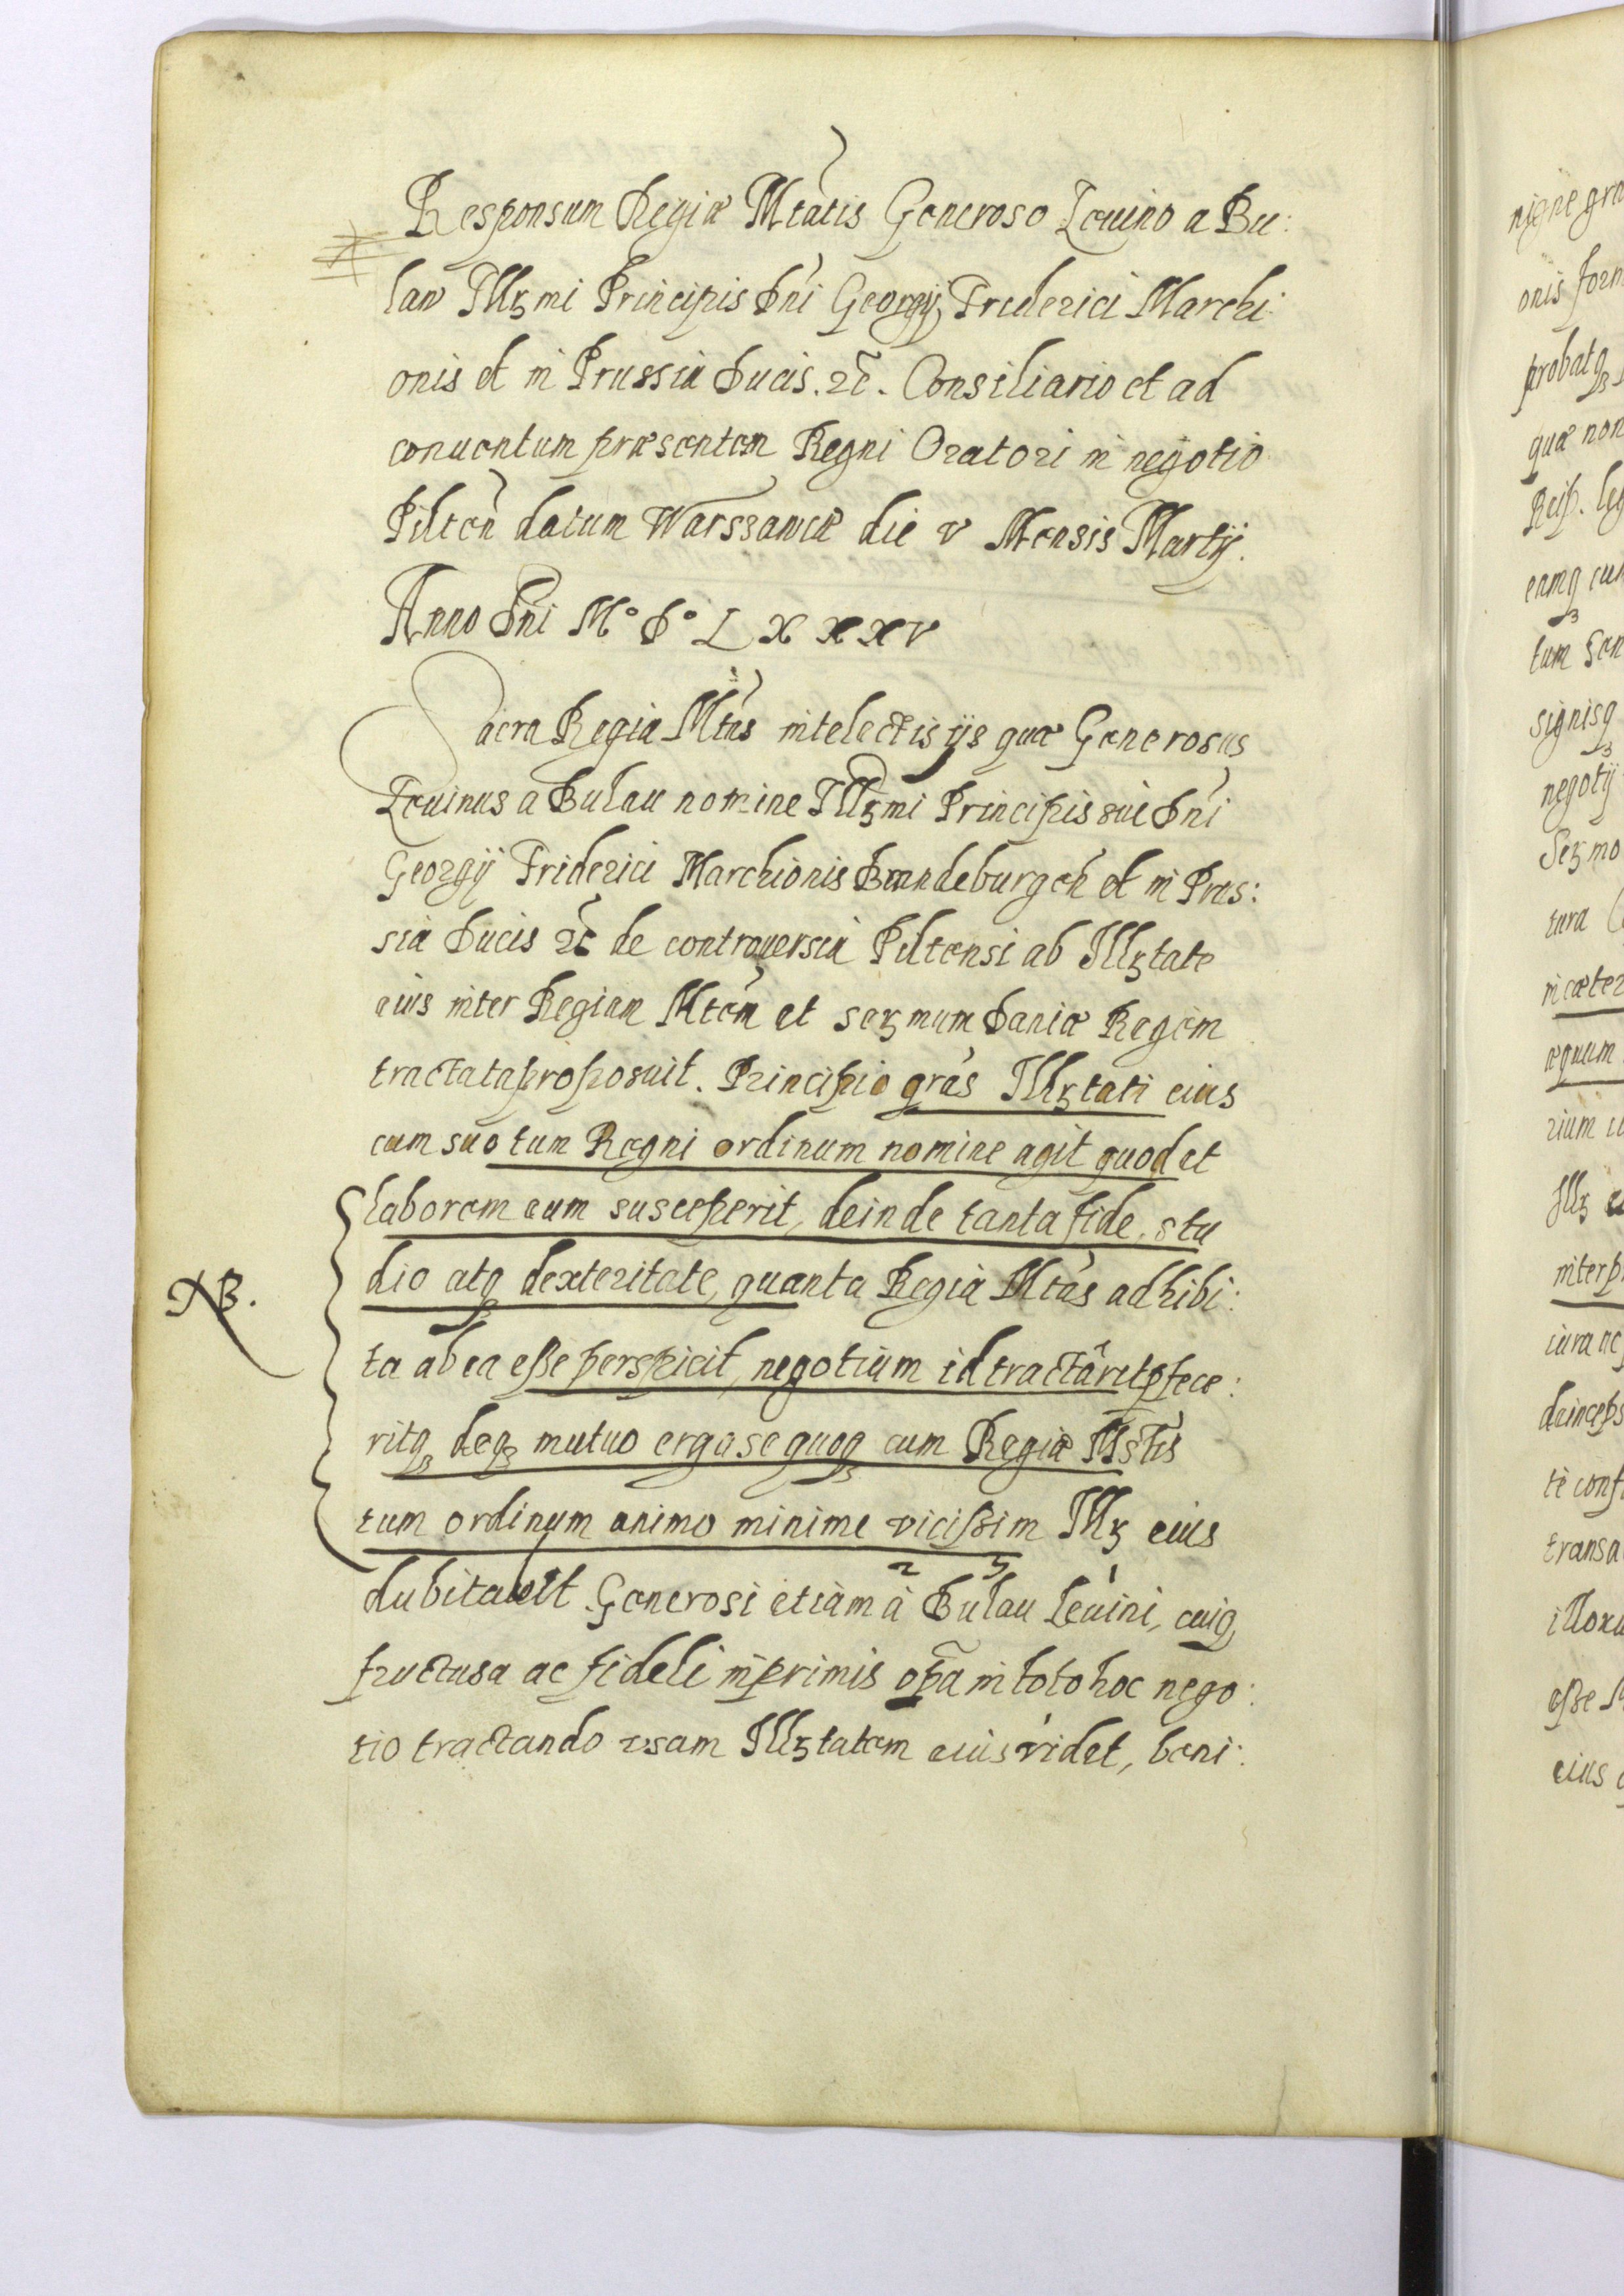 Responsum Regiæ Mtatis Generoso Leuino a Bu:
law Illꝫmi Principis Dni Georgij Frederici Marchi
onis et in Prussia Ducis. ⁊c̃. Consiliario et ad
conuentum præsentem Regni Oratori in negotio
Pilten̄ datum Warssawiæ die v Mensis Martij.
Anno Dni M° D° L X X X V
Sacra Regia Mtas intelectis ijs quæ Generosus
Leuinus a Bulau nomine Illꝫmi Principis sui Dni
Georgij Friderici Marchionis Brandeburgeñ et in Prus:
sia Ducis ⁊c de controuersia Piltensi ab Illꝫtate
eius inter Regiam Mtem et serꝫmum Daniæ Regem
tractata proposuit. Principio gras Illꝫtati eius
cum suo tum Regni ordinum nomine agit quod et
laborem eum susceperit, deinde tanta fide, stu
NB.
dio atqꝫ dexteritate, quanta Regia Mtas adhibi:
ta ab ea eße perspicit, negotium id tractarit ꝑfece:
ritqꝫ deqꝫ mutuo erga se quoqꝫ cum Regiæ Mtis
tum ordinum animo minime vicißim Illꝫ eius
2 3 1
dubitabit. Generosi etiam à Bulau Leuini, cuiq
fructuosa ac fideli inprimis oꝑa in toto hoc nego:
tio tractando vsam Illꝫtatem eius videt, beni:
nigne gra
onis form
probatqꝫ
quæ non
Reip. leg
eamqꝫ cum
tum
signisqꝫ
negotij
Serꝫmo
tura
in cæter
æquum
rium
Illꝫ
interp
iura ac
deinceps
te conf
transa
illoru
eße
eius